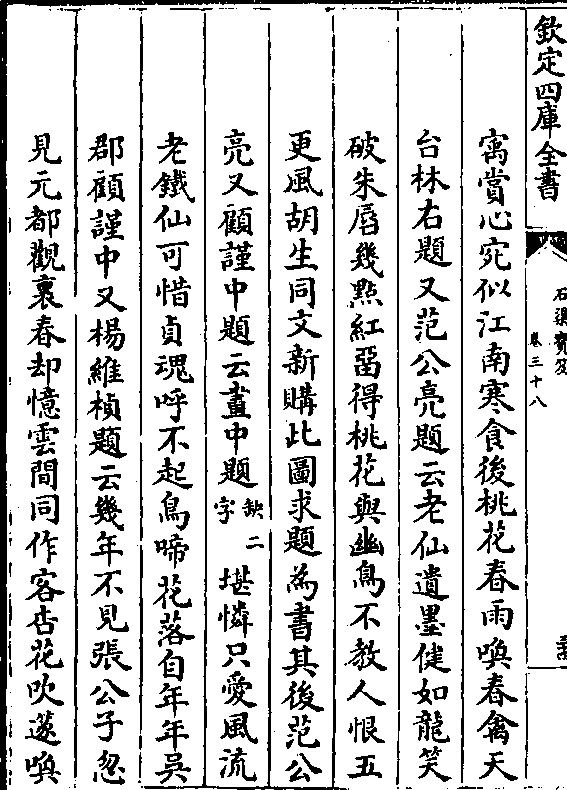 欽定四庫全書
石渠寳笈
卷三十八
寓賞心宛似江南寒食後桃花春雨喚春禽天
台林右題又范公亮題云老仙遺墨健如龍笑
破朱唇幾點紅畱得桃花與幽鳥不教人恨五
更風胡生同文新購此圖求題為書其後范公
亮又顧謹中題云畫中題缺二字堪憐只愛風流
老鐵仙可惜貞魂呼不起鳥啼花落自年年吳
郡顧謹中又楊維楨題云幾年不見張公子忽
見元都觀裏春却憶雲間同作客杏花吹邃喚